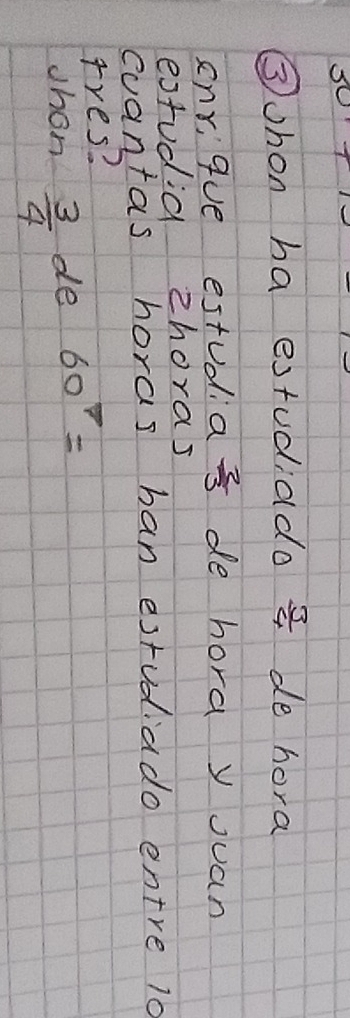 ③ Jhon ha estudiado 3/4 de hora
enrique estudia de hora y Juan
estudia 2 horas
cuantas horas han estudiado entre lo
tres?
Jhon 3/4 de 60' =